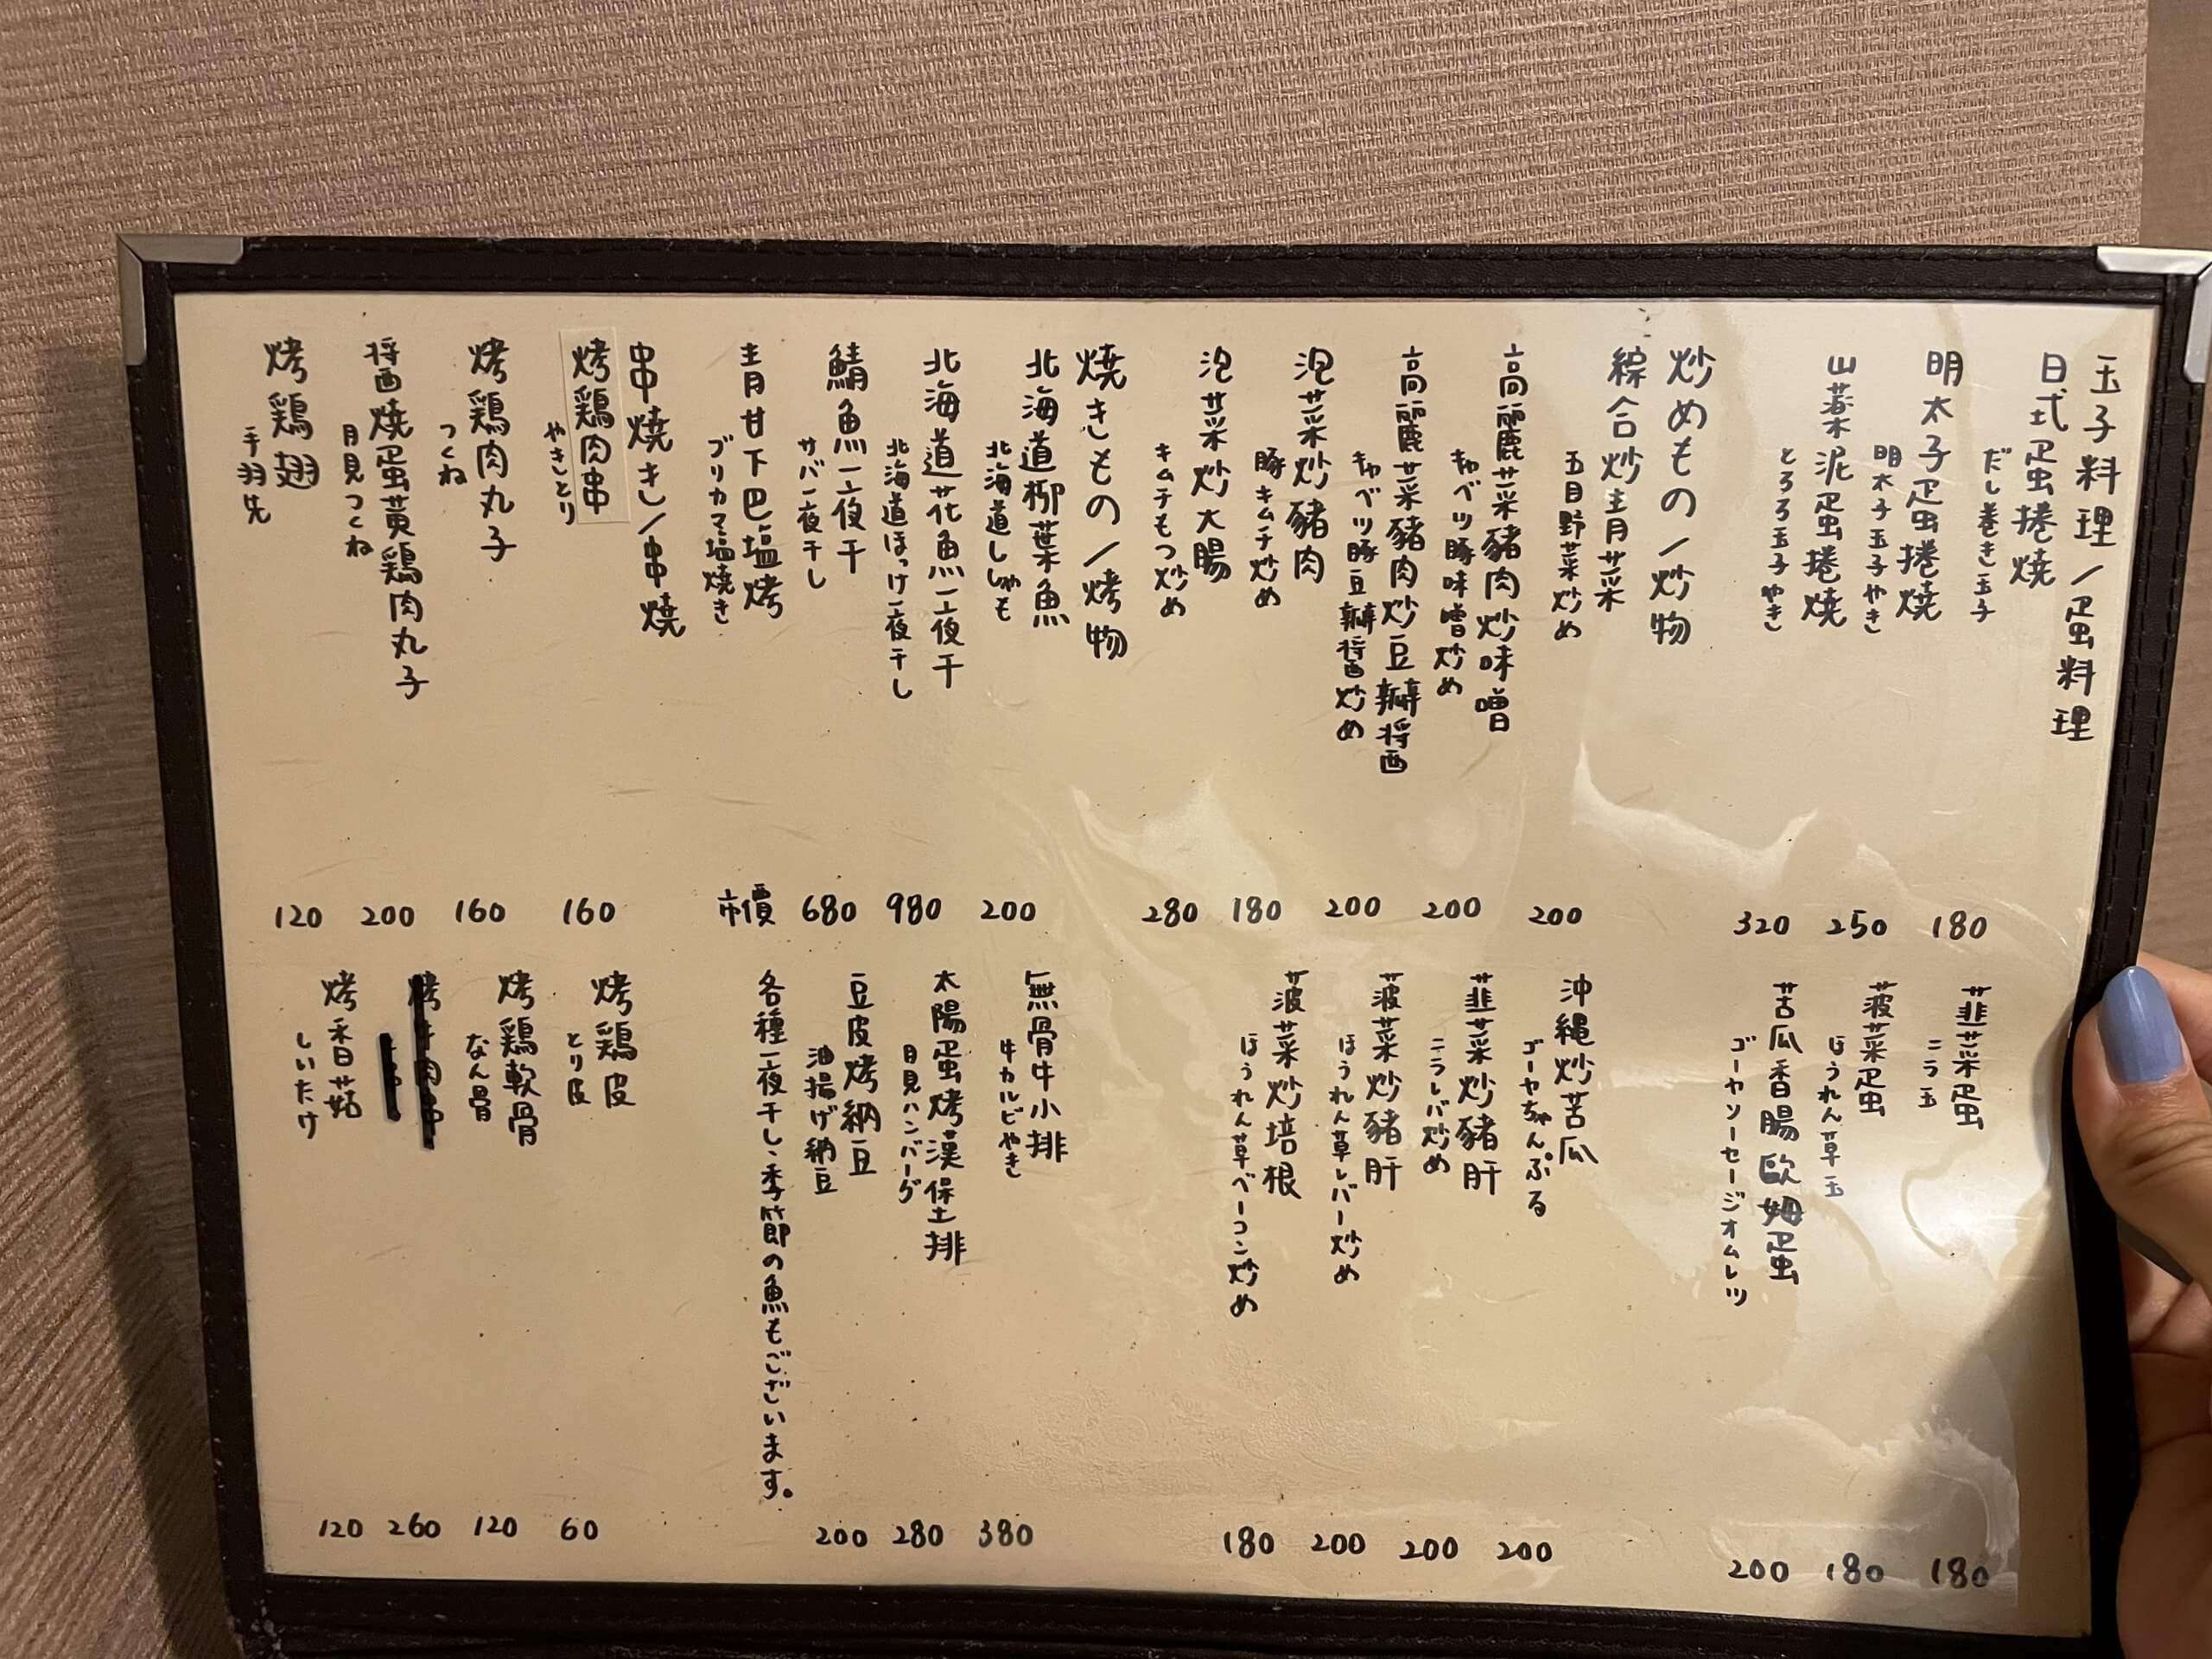 玉子料理/蛋料理
日式蛋捲燒
だし巻き玉子
180
明太子蛋捲燒
明太子玉子やき
250
山薬泥蛋捲燒
とろろ玉子やき
320
韮菜蛋
ニラ玉
180
菠菜蛋
ほうれん草玉
180
苦瓜香腸歐姆蛋
ゴーヤソーセージオムレツ
200
炒めもの/炒物
綜合炒青菜
五目野菜炒め
200
高麗菜豬肉炒味噌
キャベツ豚味噌炒め
200
高麗菜豬肉炒豆瓣醤
キャベツ豚豆瓣醤炒め
200
泡菜炒豬肉
豚キムチ炒め
180
泡菜炒大腸
キムチもつ炒め
280
沖縄炒苦瓜
ゴーヤちゃんぷる
200
韮菜炒豬肝
ニラレバ炒め
200
菠菜炒豬肝
ほうれん草レバー炒め
200
菠菜炒培根
ほうれん草ベーコン炒め
180
燒きもの/烤物
北海道柳葉魚
北海道ししゃも
200
北海道花魚一夜干
北海道ほっけ一夜干し
980
鯖魚一夜干
サバ一夜干し
680
青甘下巴塩烤
ブリカマ塩焼き
市價
無骨牛小排
牛カルビやき
380
太陽蛋烤漢保土排
月見ハンバーグ
280
豆皮烤納豆
油揚げ納豆
200
各種一夜干し、季節の魚もございます。
串燒き/串燒
烤鶏肉串
やきとり
160
烤鶏肉丸子
つくね
160
醤燒蛋黄鶏肉丸子
月見つくね
200
烤鶏翅
手羽先
120
烤鶏皮
とり皮
60
烤鶏軟骨
なん骨
120
烤牛肉串
260
烤香菇
しいたけ
120